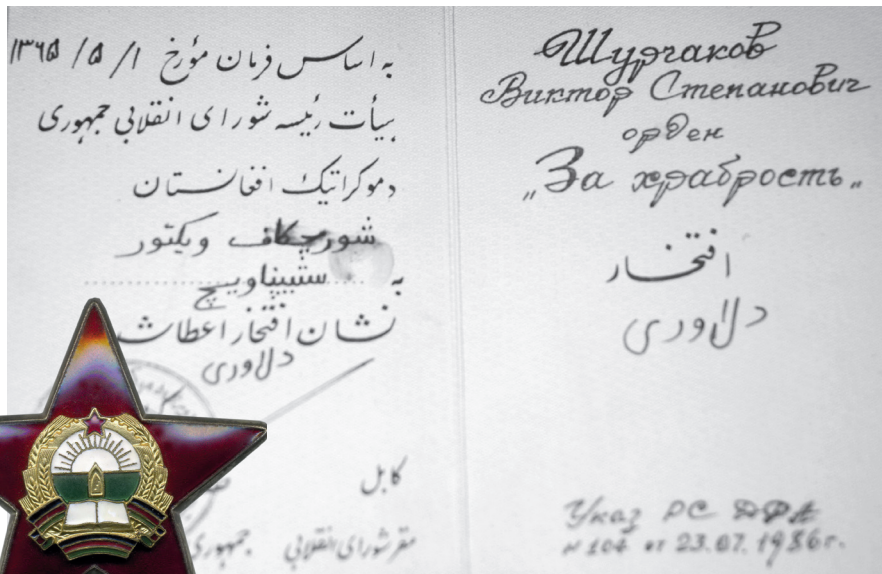 به اساس فرمان مؤرخ ۱ / ۵ / ۱۳۶۵
هیأت رئیسه شورای انقلابی جمهوری
دموکراتیک افغانستان
شورچکاف ویکتور
به ستیپناویچ
نشان افتخار اعطا شد
دلاوری
کابل
مقر شورای انقلابی جمهوری
Шурчаков
Виктор Степанович
орден
"За храбрость"
افتخار
دلاوری
Указ РС ДРА
№ 104 от 23.07.1986г.